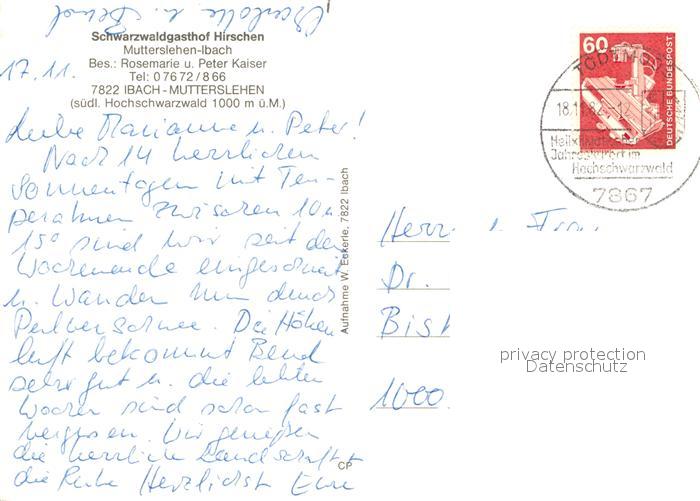 Charlotte u. Bernd
Schwarzwaldgasthof Hirschen
Mutterslehen-Ibach
Bes.: Rosemarie u. Peter Kaiser
Tel: 0 76 72 / 8 66
7822 IBACH - MUTTERSLEHEN
(südl. Hochschwarzwald 1000 m ü.M.)
17.11.
Liebe Marianne u. Peter!
Nach 14 herrlichen
Sonnentagen mit Tem-
peraturen zwischen 10 u
15° sind wir seit dem
Wochenende eingeschneit
u. wandern nun durch
Pulverschnee. Die Höhen
luft bekommt Bernd
sehr gut u. die letzten
Wochen sind schon fast
vergessen. Wir genießen
die herrliche Landschaft u
die Ruhe Herzlichst Eure
Aufnahme W. Eckerle, 7822 Ibach
CP
60
DEUTSCHE BUNDESPOST
TODTMOOS
18.11.82
Heilklimatischer
Jahreskurort im
Hochschwarzwald
7867
Herr u. Frau
Dr.
Bis
1000
privacy protection
Datenschutz